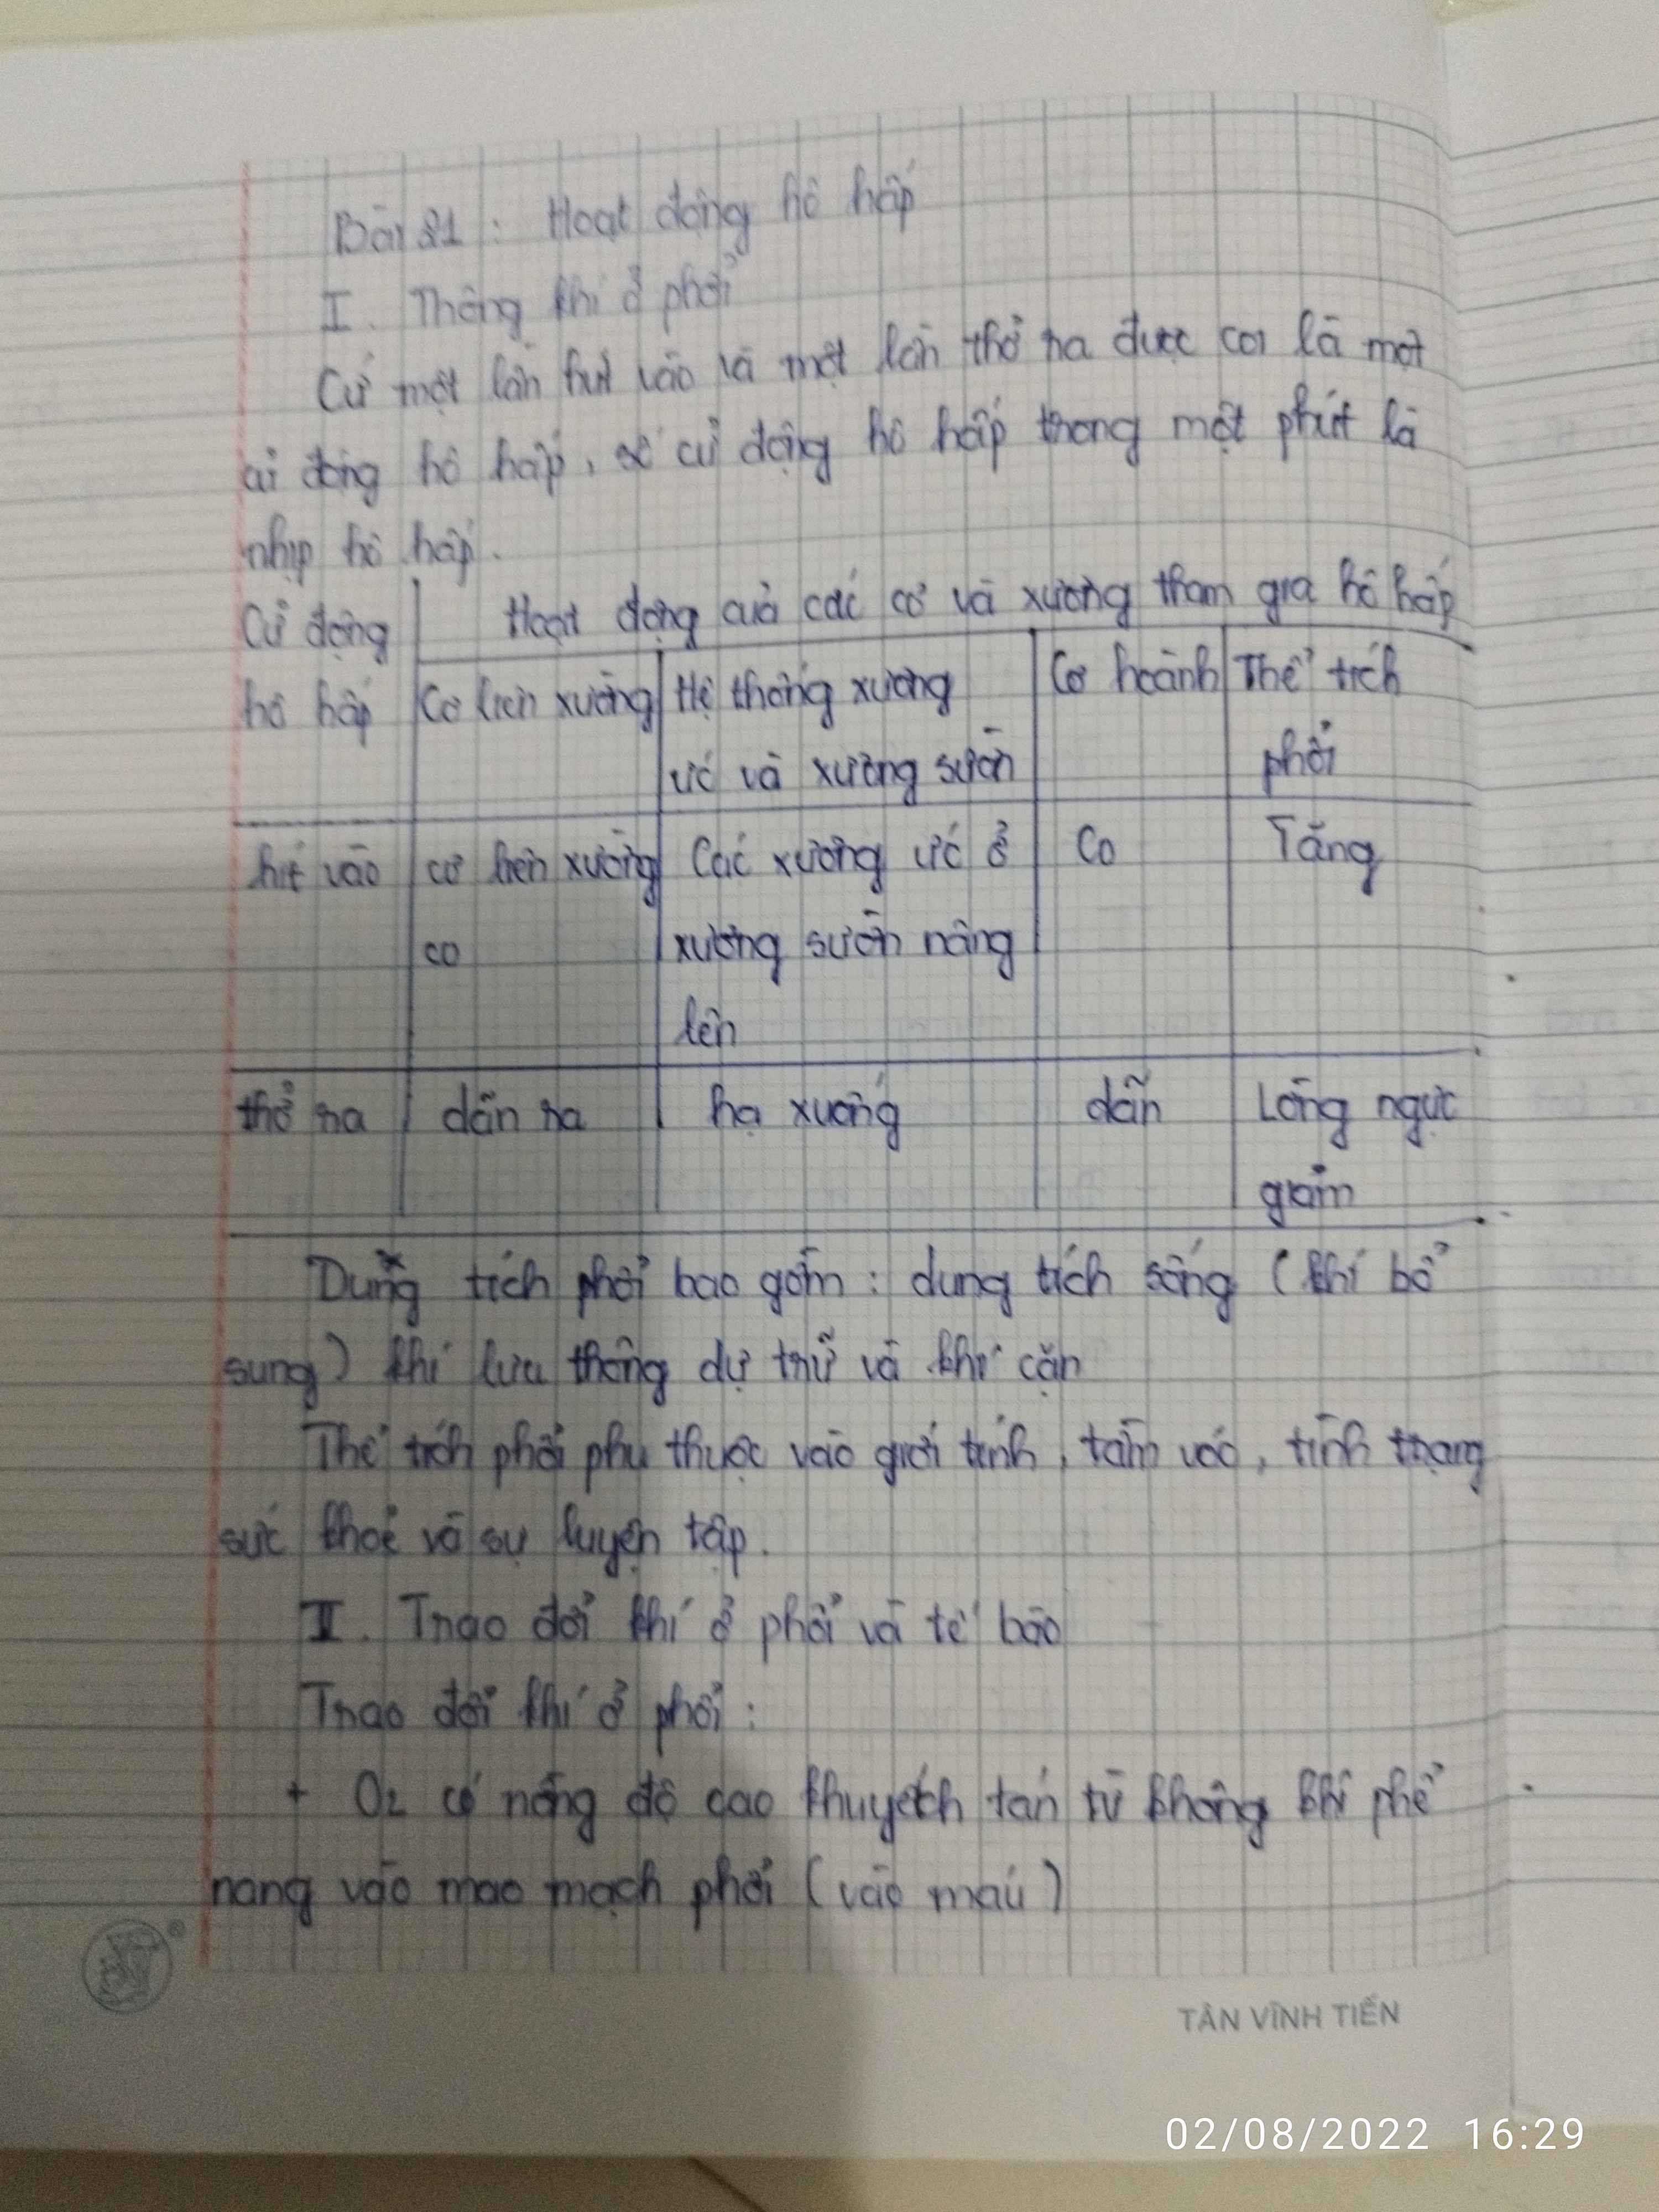 Bài 21 : Hoạt động hô hấp
I. Thông khí ở phổi
Cứ một lần hút vào và một lần thở ra được coi là một
cử động hô hấp, số cử động hô hấp trong một phút là
nhịp hô hấp.
Cử động Hoạt động của các cơ và xương tham gia hô hấp
hô hấp Cơ liên xường Hệ thống xương Cơ hoành Thể tích
ức và xường sườn phổi
hít vào cơ liên xường Các xương ức ở Co Tăng
co xương sườn nâng
lên
thở ra dãn ra hạ xuống dãn Lồng ngực
giảm
Dung tích phổi bao gồm : dung tích sống (khí bổ
sung) khí lưu thông dự trữ và khí cặn
Thể tích phổi phụ thuộc vào giới tính, tầm vóc, tình trạng
sức khoẻ và sự luyện tập.
II. Trao đổi khí ở phổi và tế bào
Trao đổi khí ở phổi :
+ O2 có nồng độ cao khuyếch tán từ không khí phế
nang vào mao mạch phổi (vào máu)
TÂN VĨNH TIẾN
02/08/2022 16:29